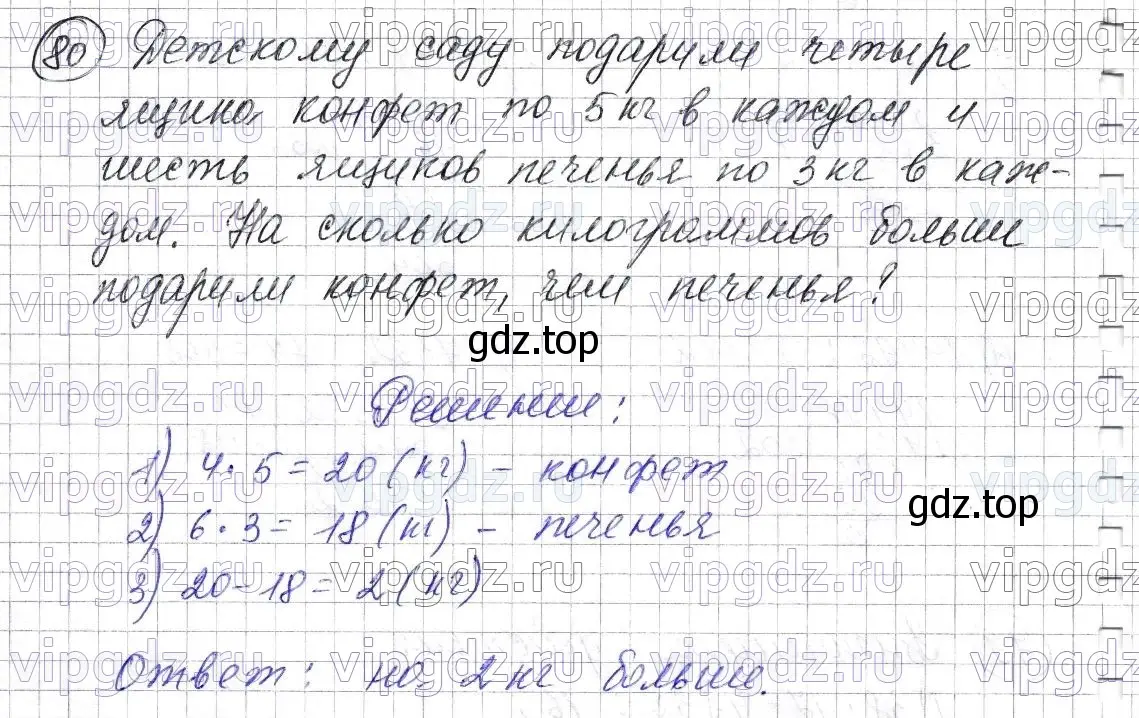 80 Детскому саду подарили четыре
ящика конфет по 5 кг в каждом и
шесть ящиков печенья по 3 кг в каж-
дом. На сколько килограммов больше
подарили конфет, чем печенья?
gdz.top
Решение:
1) 4 · 5 = 20 (кг) - конфет
2) 6 · 3 = 18 (кг) - печенья
gdz.top
3) 20 - 18 = 2 (кг)
Ответ: на 2 кг больше.
vipgdz.ru